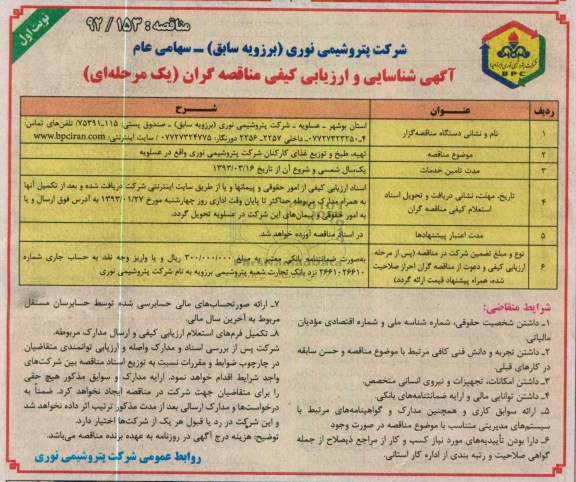 نوبت اول
مناقصه : ۱۵۳ / ۹۲
شرکت پتروشیمی نوری (برزویه سابق) ــ سهامی عام
آگهی شناسایی و ارزیابی کیفی مناقصه گران (یک مرحله‌ای)
BPC
ردیف عنــوان شــرح
۱ نام و نشانی دستگاه مناقصه‌گزار
استان بوشهر ـ عسلویه ـ شرکت پتروشیمی نوری (برزویه سابق) ـ صندوق پستی: ۱۱۵ـ۷۵۳۹۱/ تلفن‌های تماس:
۴ـ۰۷۷۲۷۳۲۳۲۵۰ـ داخلی ۲۲۵۷ـ ۲۲۵۶ دورنگار: ۰۷۷۲۷۳۲۴۷۷۵ / سایت اینترنتی: www.bpciran.com
۲ موضوع مناقصه تهیه، طبخ و توزیع غذای کارکنان شرکت پتروشیمی نوری واقع در عسلویه
۳ مدت تامین خدمات یک‌سال شمسی و شروع آن از تاریخ ۱۳۹۳/۰۳/۱۶
۴ تاریخ، مهلت، نشانی دریافت و تحویل اسناد
استعلام کیفی مناقصه گران
اسناد ارزیابی کیفی از امور حقوقی و پیمانها و یا از طریق سایت اینترنتی شرکت دریافت شده و بعد از تکمیل آنها
به همراه مدارک مربوطه حداکثر تا پایان وقت اداری روز چهارشنبه مورخ ۱۳۹۳/۰۱/۲۷ به آدرس فوق ارسال و یا
به امور حقوقی و پیمان‌های این شرکت در عسلویه تحویل گردد.
۵ مدت اعتبار پیشنهادها در اسناد مناقصه آورده خواهد شد.
۶ نوع و مبلغ تضمین شرکت در مناقصه (پس از مرحله
ارزیابی کیفی و دعوت از مناقصه گران احراز صلاحیت
شده، همراه پیشنهاد قیمت ارائه گردد)
به‌صورت ضمانتنامه بانکی معتبر به مبلغ ۳۰۰/۰۰۰/۰۰۰ ریال و یا واریز وجه نقد به حساب جاری شماره
۲۶۶۱۰۲۶۶۱۰ نزد بانک تجارت شعبه پتروشیمی برزویه به نام شرکت پتروشیمی نوری
شرایط متقاضی:
۱ـ داشتن شخصیت حقوقی، شماره شناسه ملی و شماره اقتصادی مؤدیان
مالیاتی.
۲ـ داشتن تجربه و دانش فنی کافی مرتبط با موضوع مناقصه و حسن سابقه
در کارهای قبلی.
۳ـ داشتن امکانات، تجهیزات و نیروی انسانی متخصص.
۴ـ داشتن توانایی مالی و ارایه ضمانتنامه‌های بانکی.
۵ـ ارائه سوابق کاری و همچنین مدارک و گواهینامه‌های مرتبط با
سیستم‌های مدیریتی متناسب با موضوع مناقصه در صورت وجود
۶ـ دارا بودن تأییدیه‌های مورد نیاز کسب و کار از مراجع ذیصلاح از جمله
گواهی صلاحیت و رتبه بندی از اداره کار استانی.
۷ـ ارائه صورتحساب‌های مالی حسابرسی شده توسط حسابرسان مستقل
مربوط به آخرین سال مالی.
۸ـ تکمیل فرم‌های استعلام ارزیابی کیفی و ارسال مدارک مربوطه.
شرکت پس از بررسی اسناد و مدارک واصله و ارزیابی توانمندی متقاضیان
در چارچوب ضوابط و مقررات نسبت به توزیع اسناد مناقصه بین شرکت‌های
واجد شرایط اقدام خواهد نمود. ارایه مدارک و سوابق مذکور هیچ حقی
را برای متقاضیان جهت شرکت در مناقصه ایجاد نخواهد کرد. ضمناً به
درخواست‌ها و مدارک ارسالی بعد از مدت مذکور ترتیب اثر داده نخواهد شد
و این شرکت در رد یا قبول هر یک از شرکت‌ها اختیار دارد.
توضیح: هزینه درج آگهی در روزنامه به عهده برنده مناقصه می‌باشد.
روابط عمومی شرکت پتروشیمی نوری